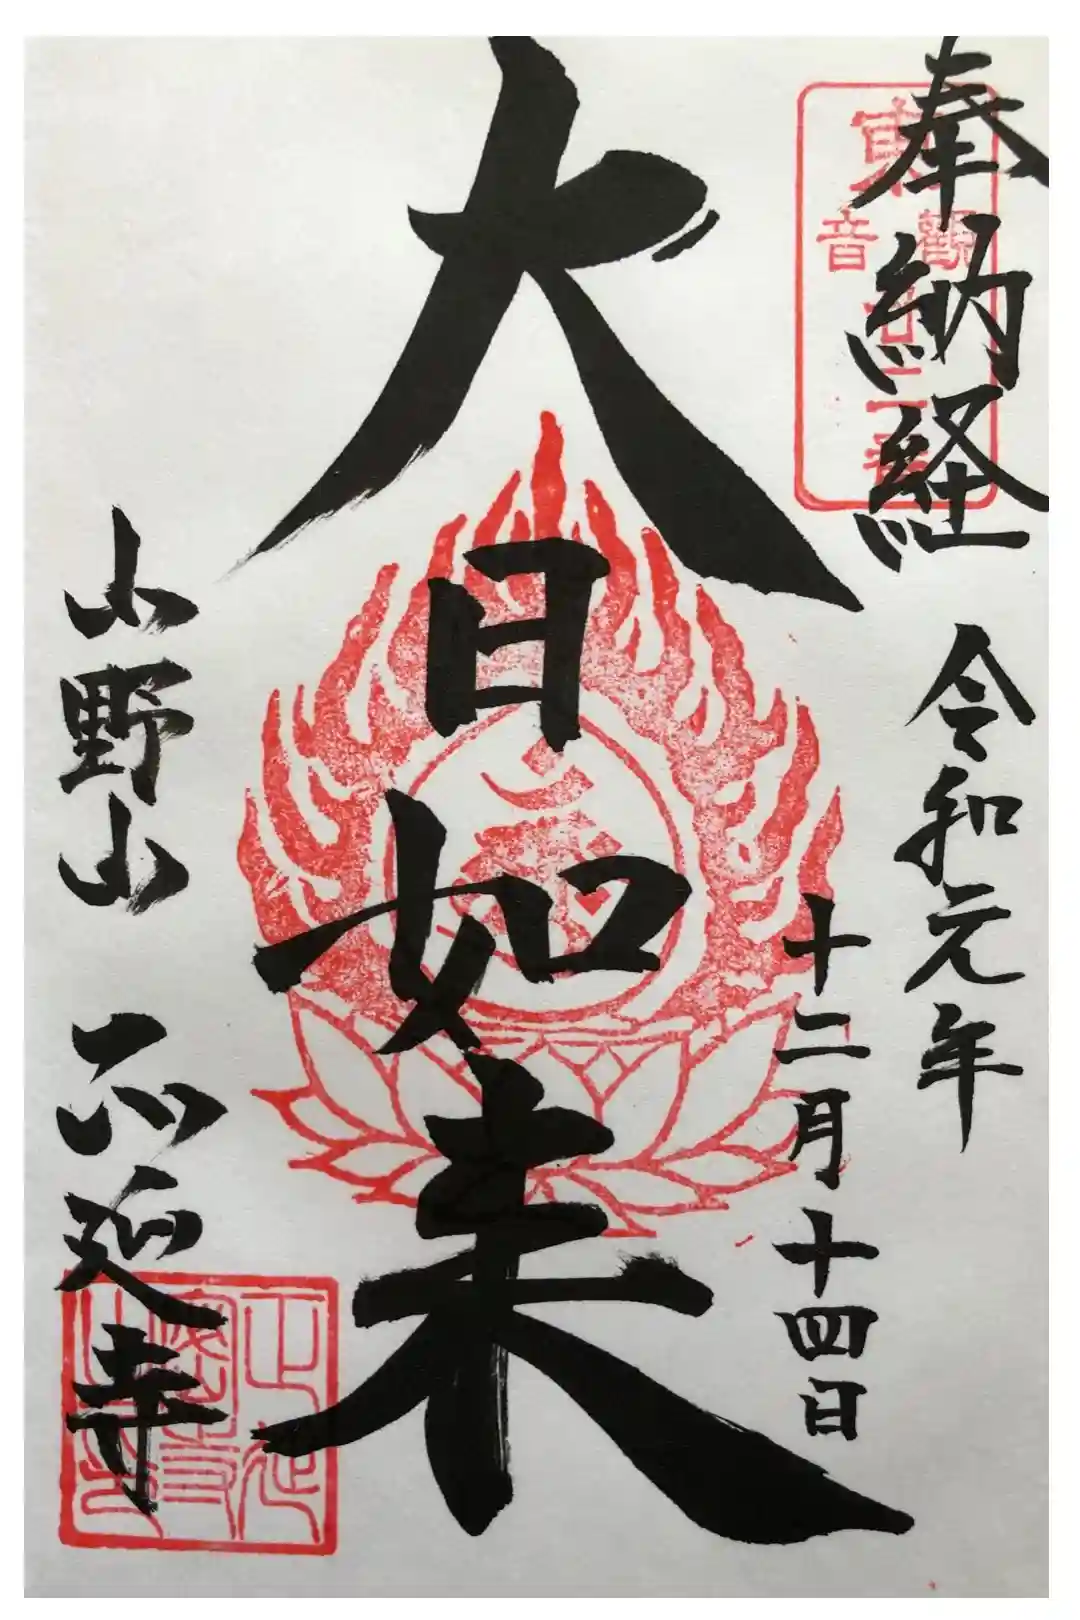 奉納経
令和元年
十二月十四日
大日如来
小野山 正延寺